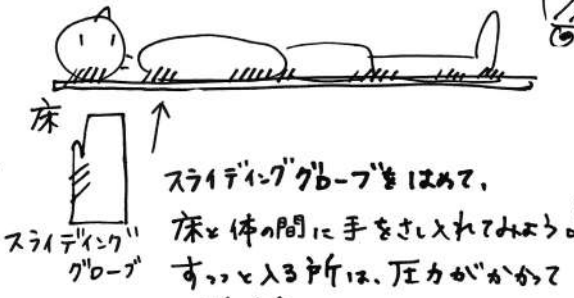 床
スライディング
グローブ
スライディンググローブをはめて、
床と体の間に手をさし入れてみよう。
すっっと入る所は、圧力がかかって